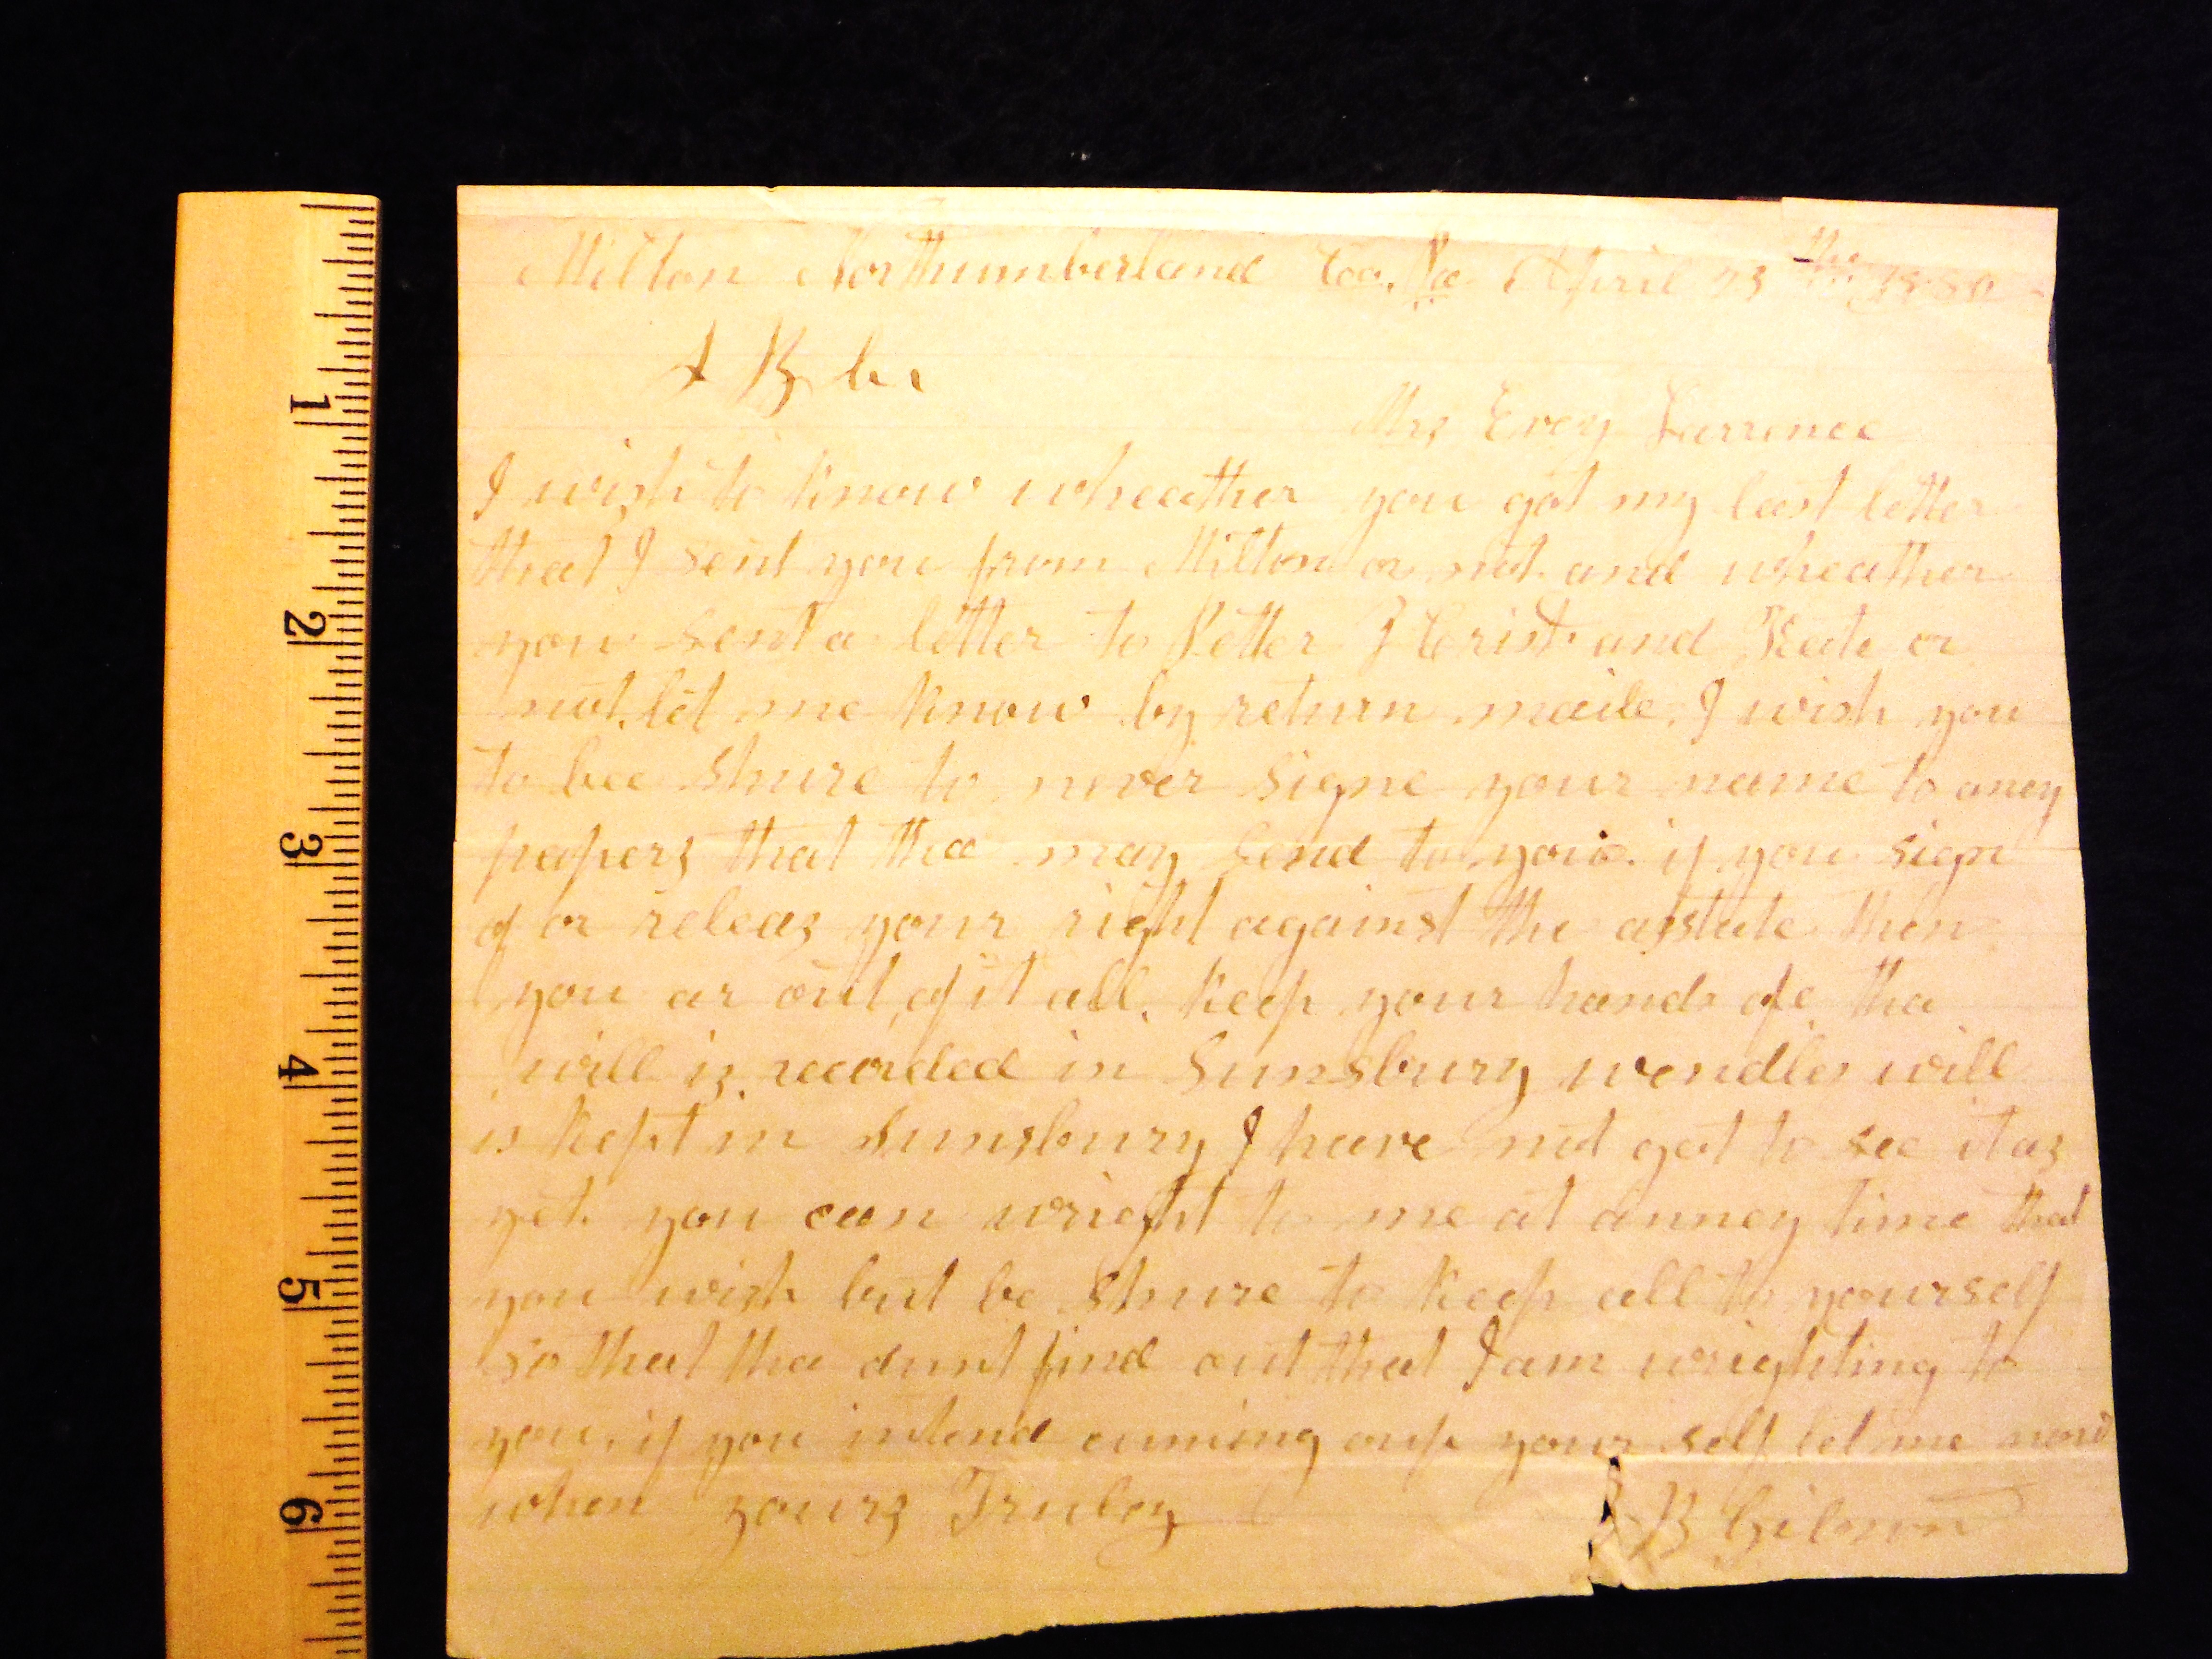 Milton Northumberland Coo. Pa April 23 the 1880
Mrs Evey Larrence
I wish to know wheather you got my last letter
that I sent you from Milton or not. and wheather
you sent a letter to Petter J Crist and Kate or
not. let me know by return maile. I wish you
to bee shure to never signe your name to aney
papers that tha may send to you. if you sign
of or releas your right against the asstate then
you ar out of it all. Keep your hands of. the
will is recorded in Sunsbury wendles will
is kept in Sunsbury I have not got to see it as
yet. you can wright to me at anney time that
you wish but be shure to keep all to yourself
so that tha dunt find out that I am wrighting to
you. if you intend cuming oup your self let me now
when yours Truley B Gilmon
1
2
3
4
5
6